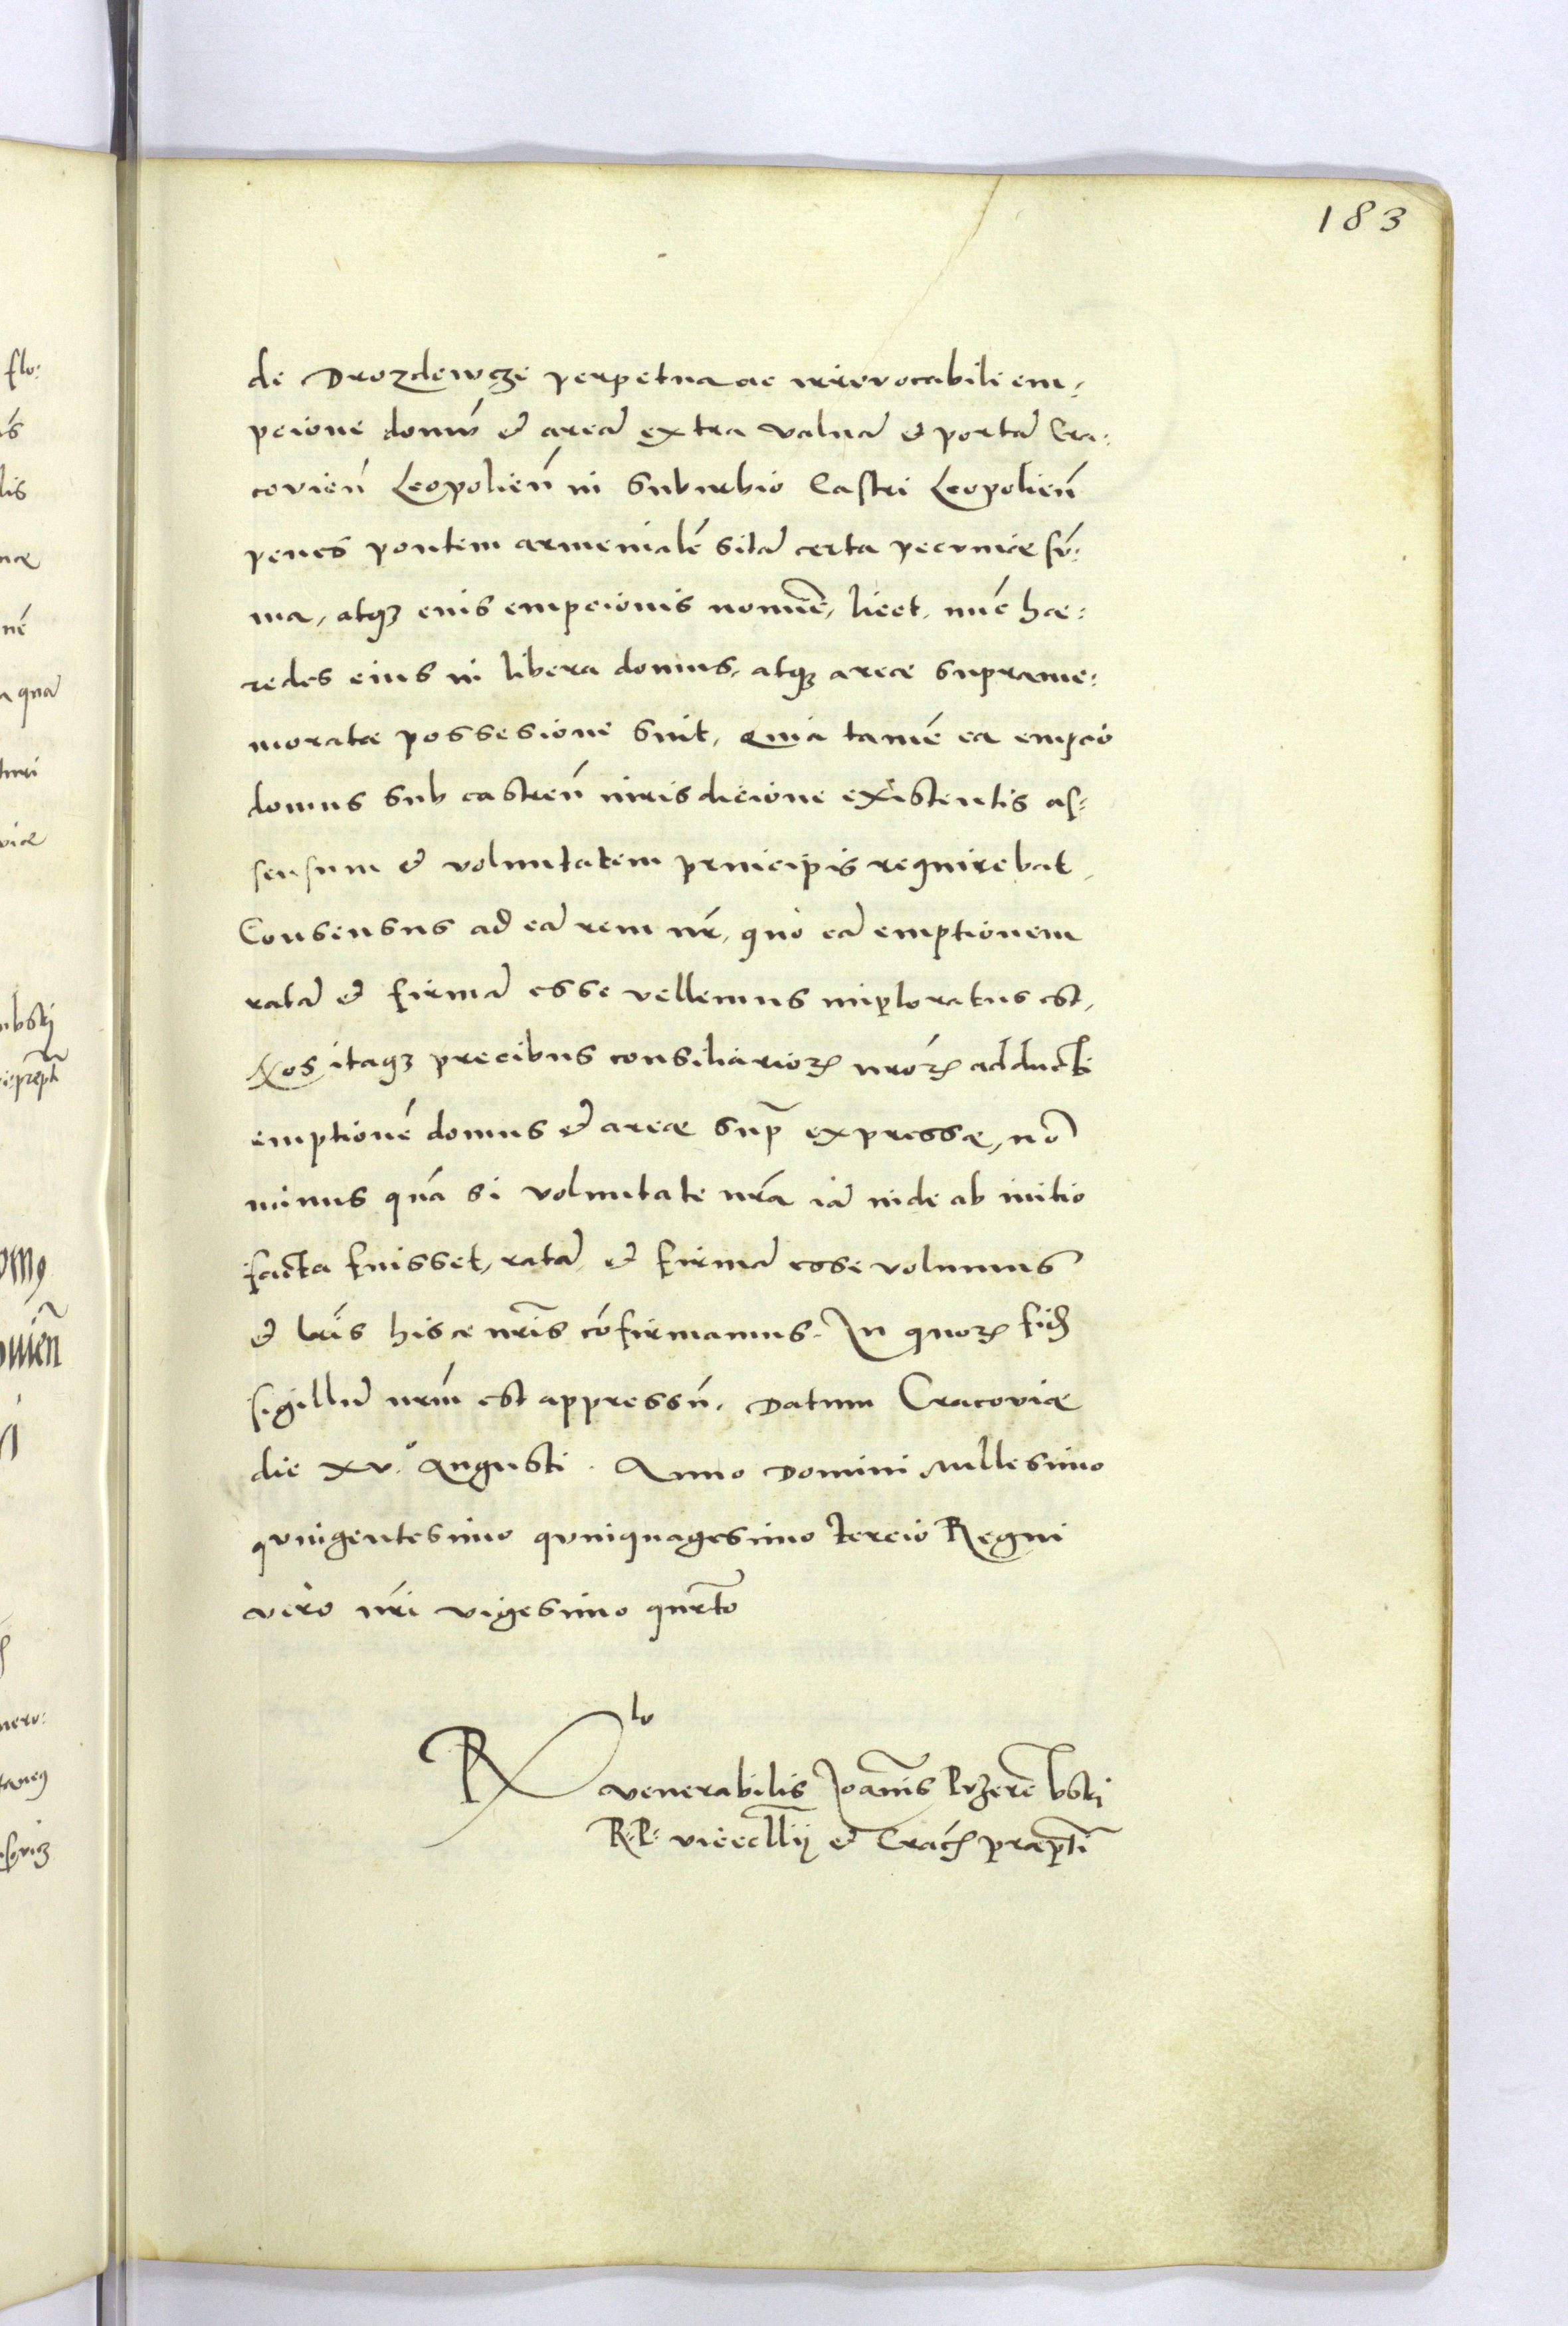 183
de Drozdewcze perpetua ac irrevocabili em-
pcione domū et areā extra valuā et portā Cra-
covieñ Leopolieñ in suburbio Castri Leopolieñ
penes pontem armenialē sitā certa pecuniæ sū-
ma, atq3 eius empcionis nomīe, licet, nūc hæ-
redes eius in libera domus, atq3 areæ supræme-
moratæ possesione sint, Quia tamē ea empcio
domus sub castreñ iurisdicione existentis as-
sensum et voluntatem principis requirebat,
Consensus ad eā rem nr̃, quo eā emptionem
ratā et firmā esse vellemus imploratus est,
Nos itaq3 precibus consiliarioꝝ nr̃oꝝ adducti
emptionē domus et areæ sup̃ expressæ, nō
minus quā si voluntate nr̃a iā inde ab initio
facta fuisset, ratā et firmā esse volumus
et lr̃is hisce nr̃is cōfirmamus. In quoꝝ fid̃
sigillū nr̃m est appressū. Datum Cracoviæ
die xv.° Augusti. Anno Domini Millesimo
quingentesimo quinquagesimo tercio Regni
vero nr̃i vigesimo quarto
Rlo
venerabilis Joannis Przerēbski
R: P: vicecllĩj et Crac̃ præpt̃i
flo:
lis
næ
nē
a quā
turi
viæ